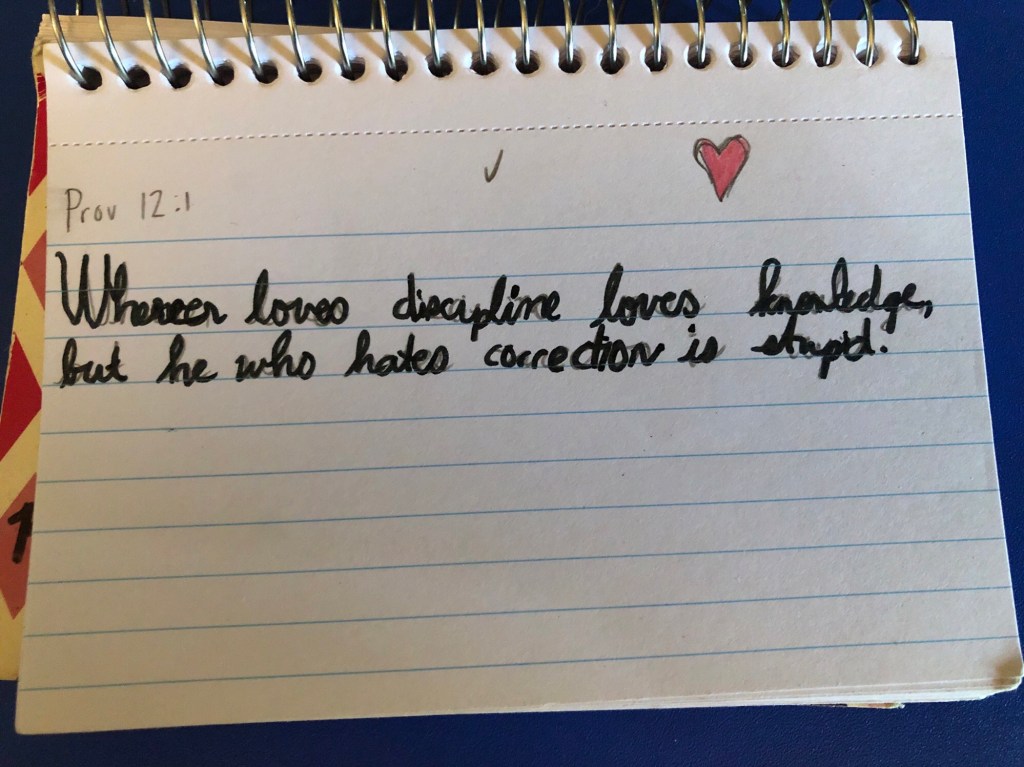 Prov 12:1
Whoever loves discipline loves knowledge,
but he who hates correction is stupid.
1